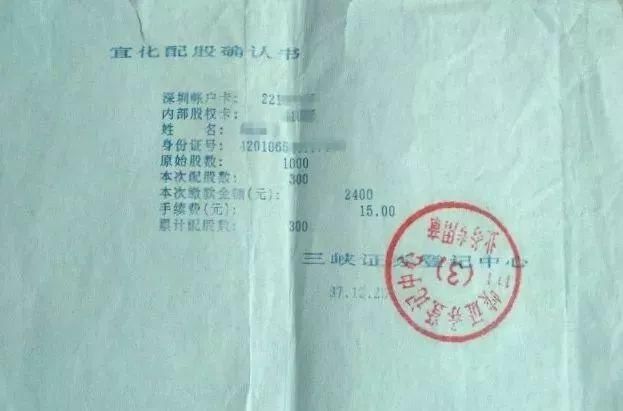 宜化配股确认书
深圳帐户卡: 221
内部股权卡:
姓 名:
身份证号: 4201066
原始股数: 1000
本次配股数: 300
本次缴款金额(元): 2400
手续费(元): 15.00
累计配股数: 300
三峡证券登记中心
97.12.2
三峡证券登记中心
(3)
业务专用章